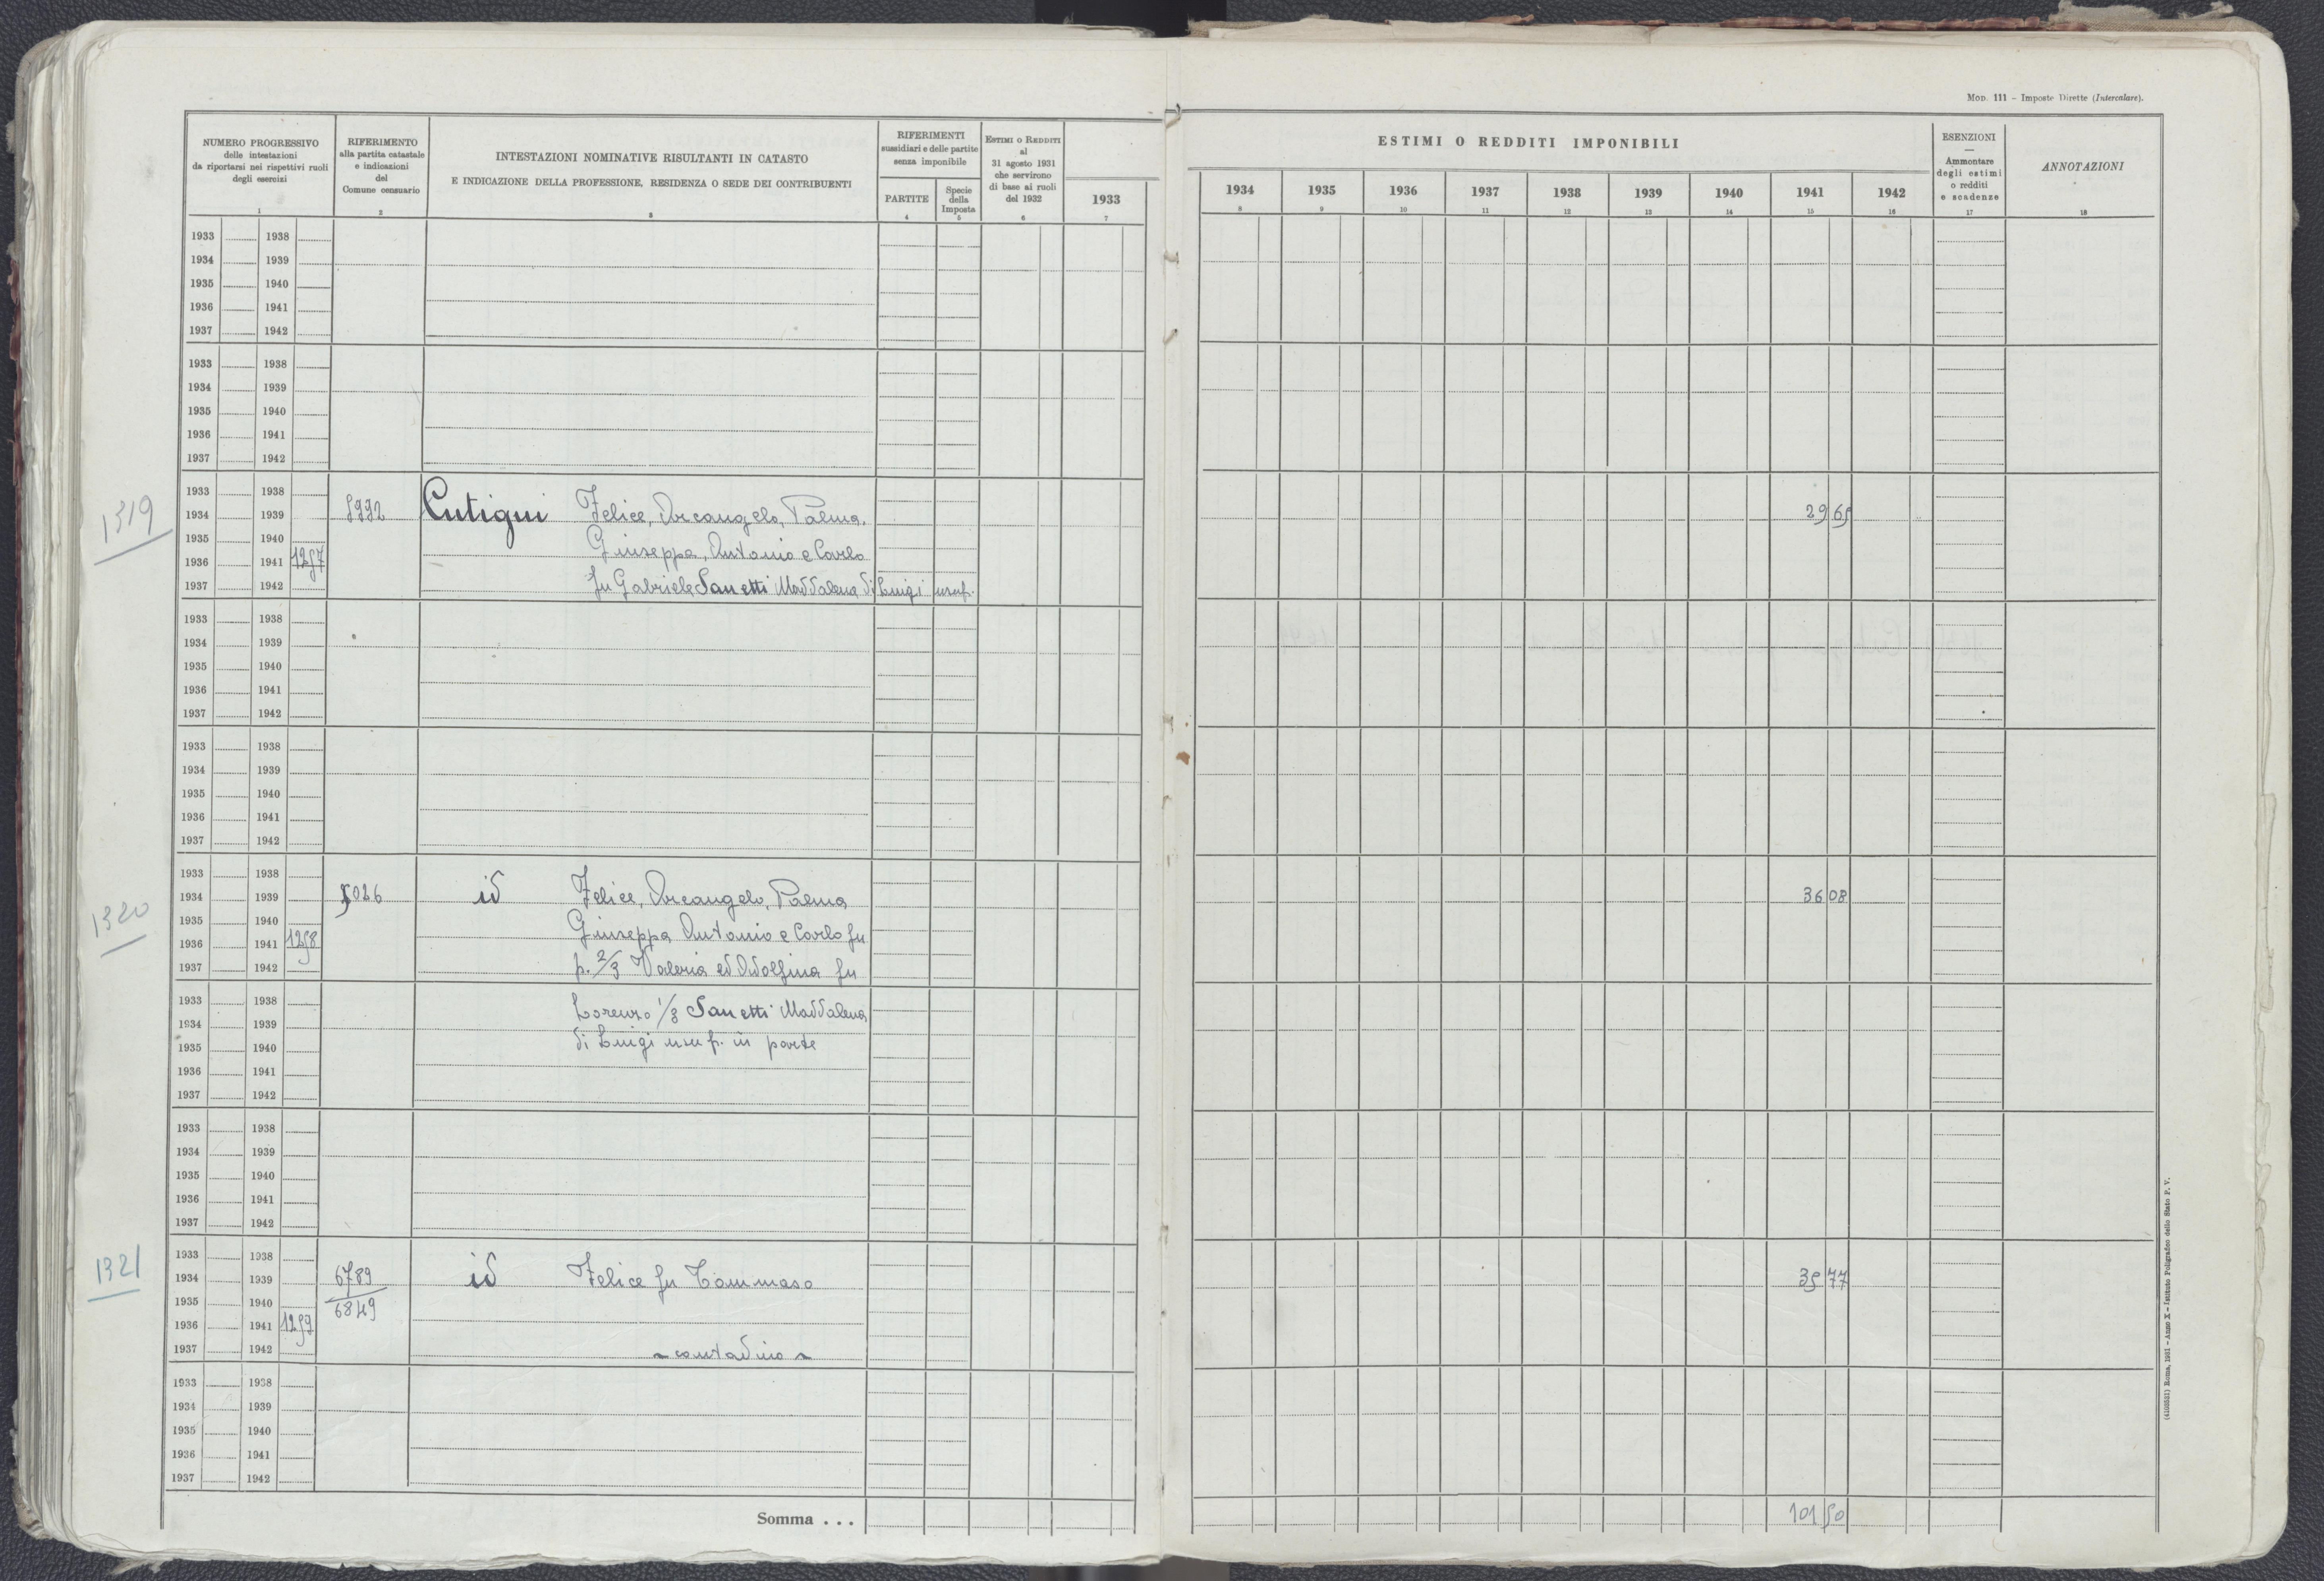 MOD. 111 – Imposte Dirette (Intercalare).
NUMERO PROGRESSIVO
delle intestazioni
da riportarsi nei rispettivi ruoli
degli esercizi
1
RIFERIMENTO
alla partita catastale
e indicazioni
del
Comune censuario
2
INTESTAZIONI NOMINATIVE RISULTANTI IN CATASTO
E INDICAZIONE DELLA PROFESSIONE, RESIDENZA O SEDE DEI CONTRIBUENTI
3
RIFERIMENTI
sussidiari e delle partite
senza imponibile
PARTITE
4
Specie
della
Imposta
5
ESTIMI O REDDITI
al
31 agosto 1931
che servirono
di base ai ruoli
del 1932
6
1933
7
ESTIMI O REDDITI IMPONIBILI
1934 1935 1936 1937 1938 1939 1940 1941 1942
8 9 10 11 12 13 14 15 16
ESENZIONI
—
Ammontare
degli estimi
o redditi
e scadenze
17
ANNOTAZIONI
18
1933 1938
1934 1939
1935 1940
1936 1941
1937 1942
1933 1938
1934 1939
1935 1940
1936 1941
1937 1942
1319
1933 1938
1934 1939 5992 Cutigni Felice, Arcangelo, Palma, 29 65
1935 1940 Giuseppa, Antonio e Carlo
1936 1941 1257
1937 1942 fu Gabriele Sanetti Maddalena di Luigi usuf.
1933 1938
1934 1939
1935 1940
1936 1941
1937 1942
1933 1938
1934 1939
1935 1940
1936 1941
1937 1942
1320
1933 1938
1934 1939 id Felice, Arcangelo, Palma 36 08
1935 1940 Giuseppa Antonio e Carlo fu
1936 1941 1258
1937 1942 p. 2/3 Valeria ed Adolfina fu
1933 1938 Lorenzo 1/3 Sanetti Maddalena
1934 1939
1935 1940 di Luigi usuf. in parte
1936 1941
1937 1942
1933 1938
1934 1939
1935 1940
1936 1941
1937 1942
1321
1933 1938
1934 1939 6789 id Felice fu Tommaso 35 77
1935 1940 6849
1936 1941 1259
1937 1942 - contadino -
1933 1938
1934 1939
1935 1940
1936 1941
1937 1942
Somma . . . 101 50
(4103531) Roma, 1931 – Anno X – Istituto Poligrafico dello Stato P. V.